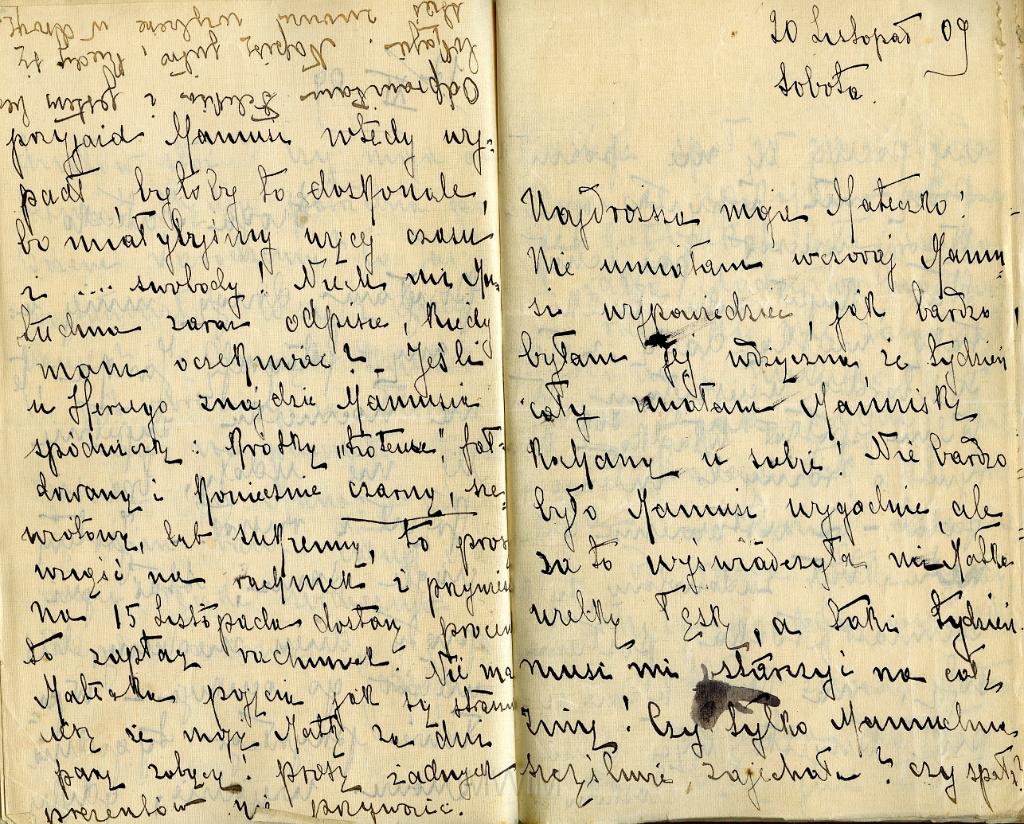 20 Listopad 09
Sobota.
Najdroższa moja Mateczko!
Nie umiałam wczoraj Mamu-
si wypowiedzieć, jak bardzo
byłam Jej wdzięczna, że tydzień
cały miałam Mamusię
Kochaną u siebie! Nie bardzo
było Mamusi wygodnie ale
za to wyświadczyła mi Matka
wielką łaskę, a taki tydzień
musi mi starczyć na całą
zimę! Czy tylko Mamuchna
szczęśliwie zajechała? czy spała?
przyjazd Mamusi wtedy wy-
padł byłoby to doskonale,
bo miałybyśmy więcej czasu
i .... swobody! Niech mi Ma-
tuchna zaraz odpisze, kiedy
mam oczekiwać? Jeśli
u Hersego znajdzie Mamusia
spódniczkę: Krótką, "trotteuse", fał-
dowaną i koniecznie czarną sze-
wiotową, lub sukienną, to proszę
wziąść na rachunek i przywieźć
Na 15 Listopada dostanę procent
to zapłacę rachunek. Nie ma
Mateczka pojęcia jak się strasznie
cieszę że moją Matkę za dni
parę zobaczę! proszę żadnych
prezentów nie przywozić.
Odprawiłam i jestem bez
Napiszę jutro, kiedy się